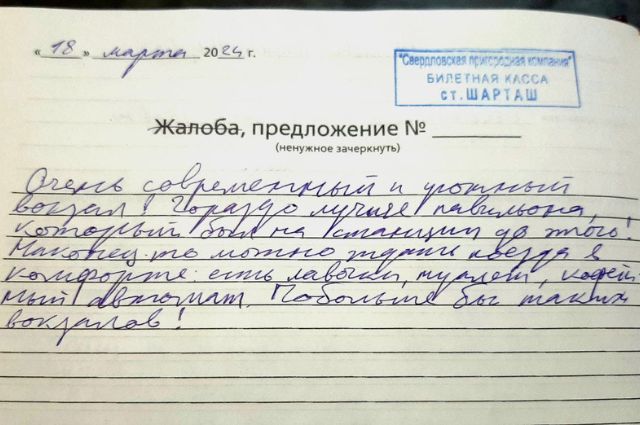 « 18 » марта 2024 г.
"Свердловская пригородная компания"
БИЛЕТНАЯ КАССА
ст. ШАРТАШ
Жалоба, предложение №
(ненужное зачеркнуть)
Очень современный и уютный
вокзал! Гораздо лучше павильона,
который был на станции до этого!
Наконец-то можно ждать поезда в
комфорте: есть лавочки, туалет, кофей-
ный автомат. Побольше бы таких
вокзалов!